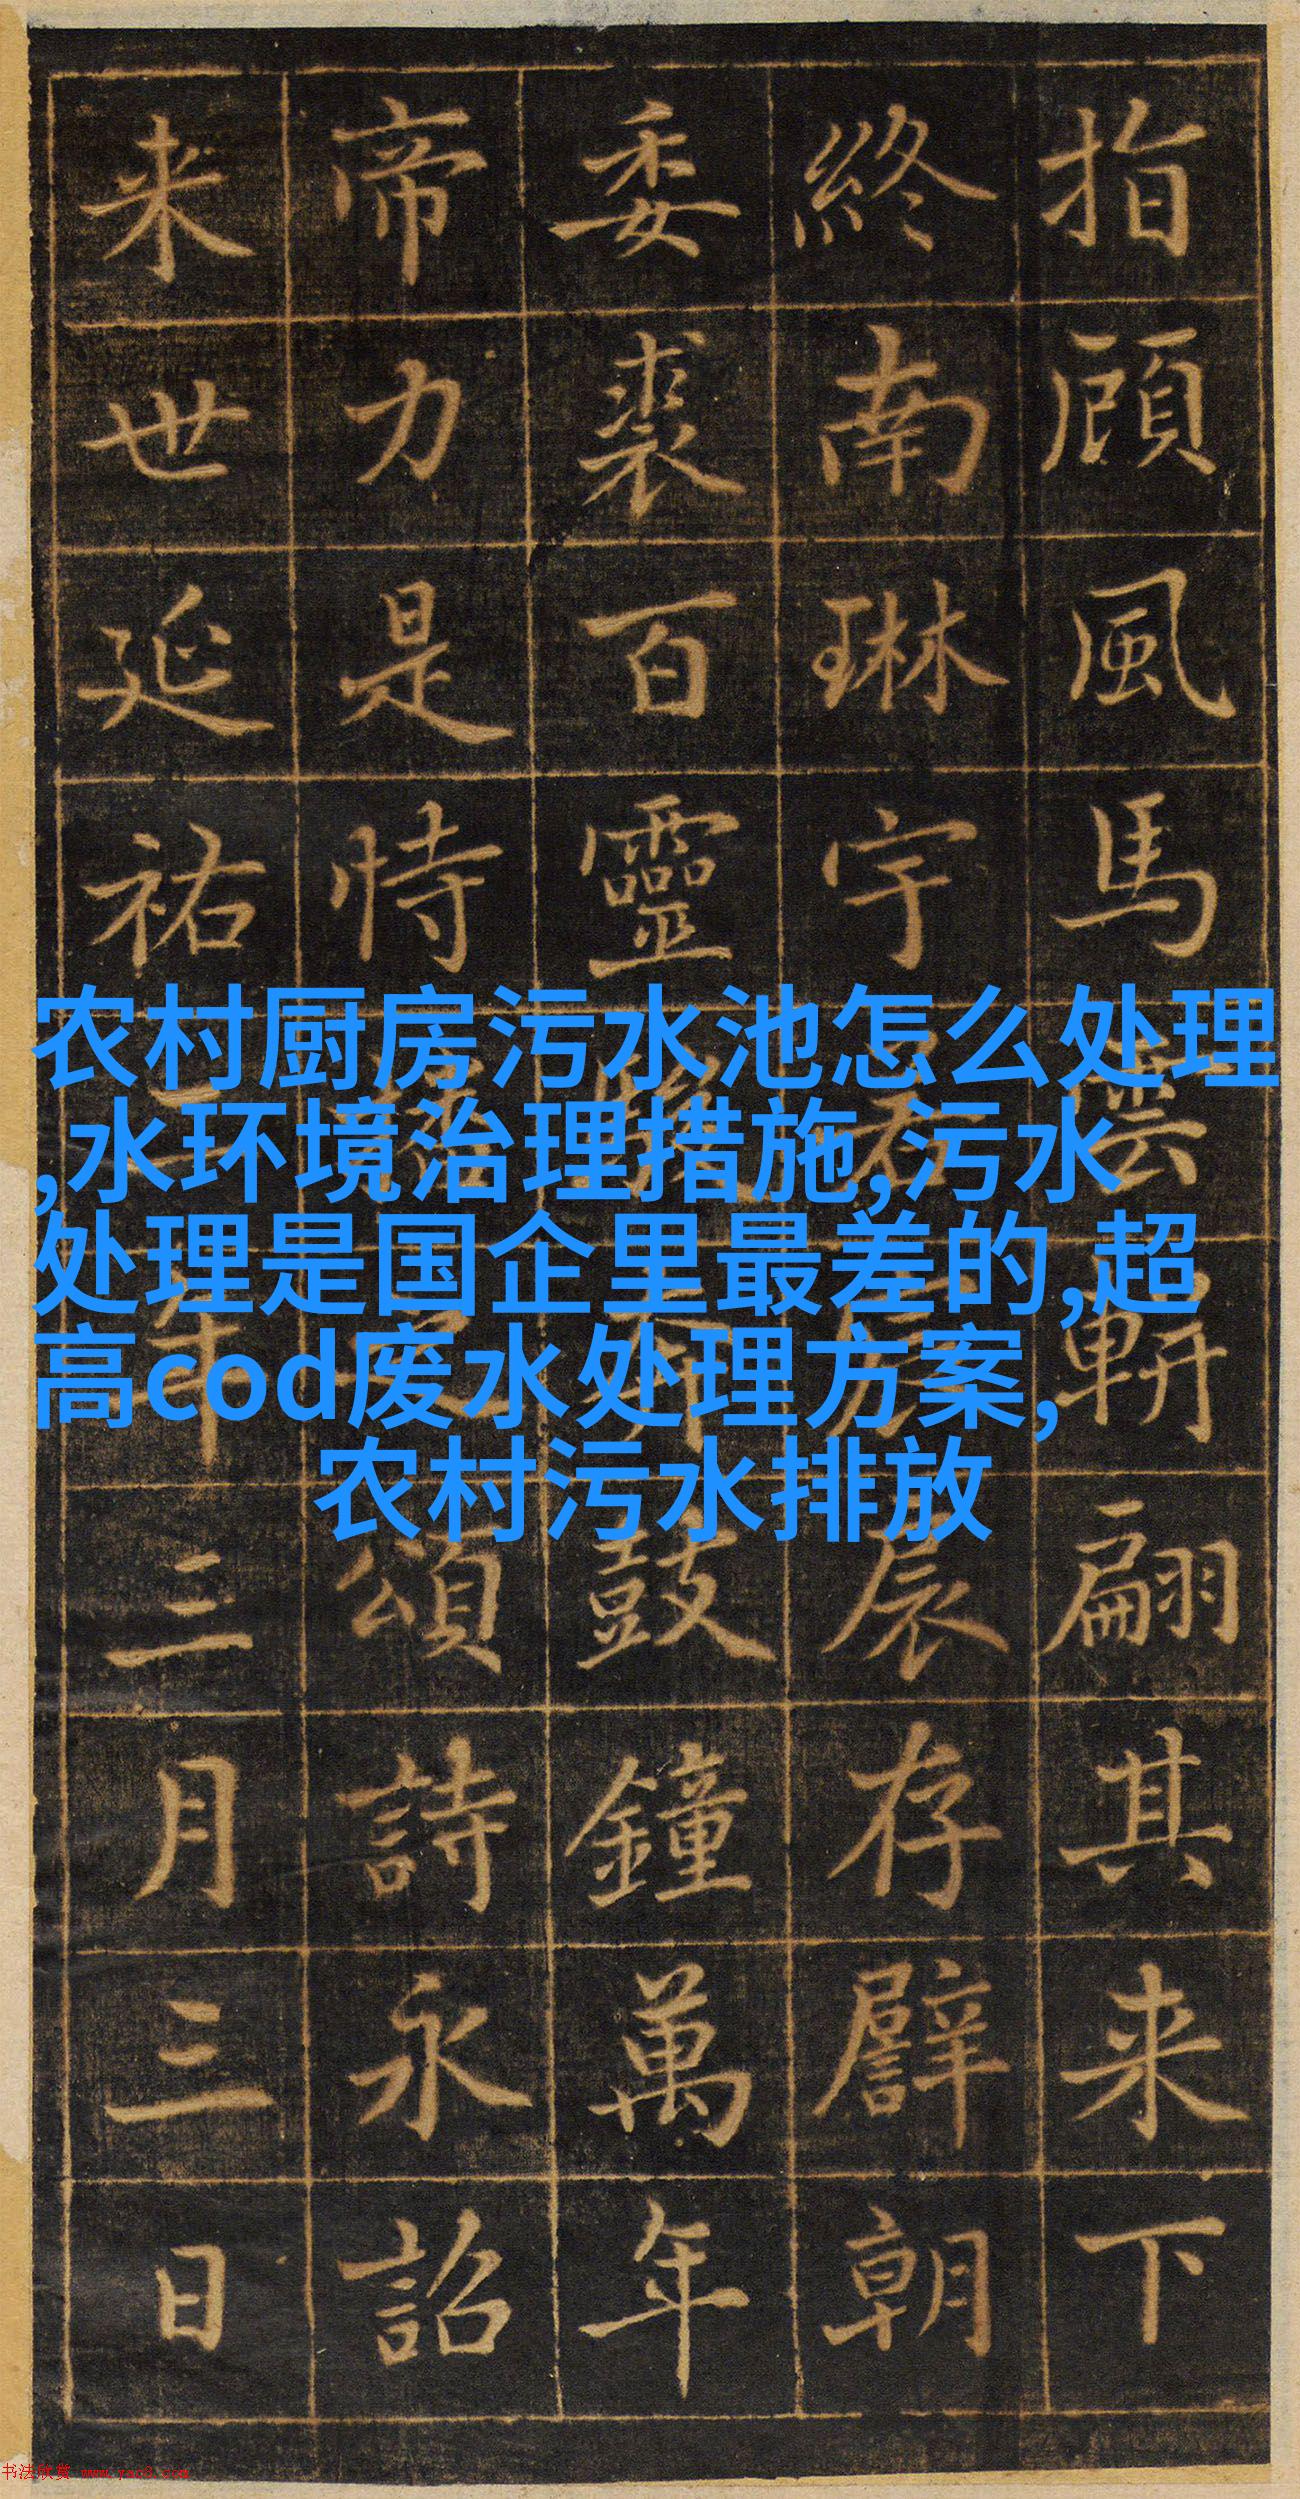 指顧風馬雲軿翩其来下
終南琳宇
扆存
朝
委裘百靈
鼓鐘萬年
帝力是恃
頌詩永詔
来世延祐
年三月三日
农村厨房污水池怎么处理
,水环境治理措施,污水
处理是国企里最差的,超
高cod废水处理方案,
农村污水排放
书法欣赏 www.yac8.com